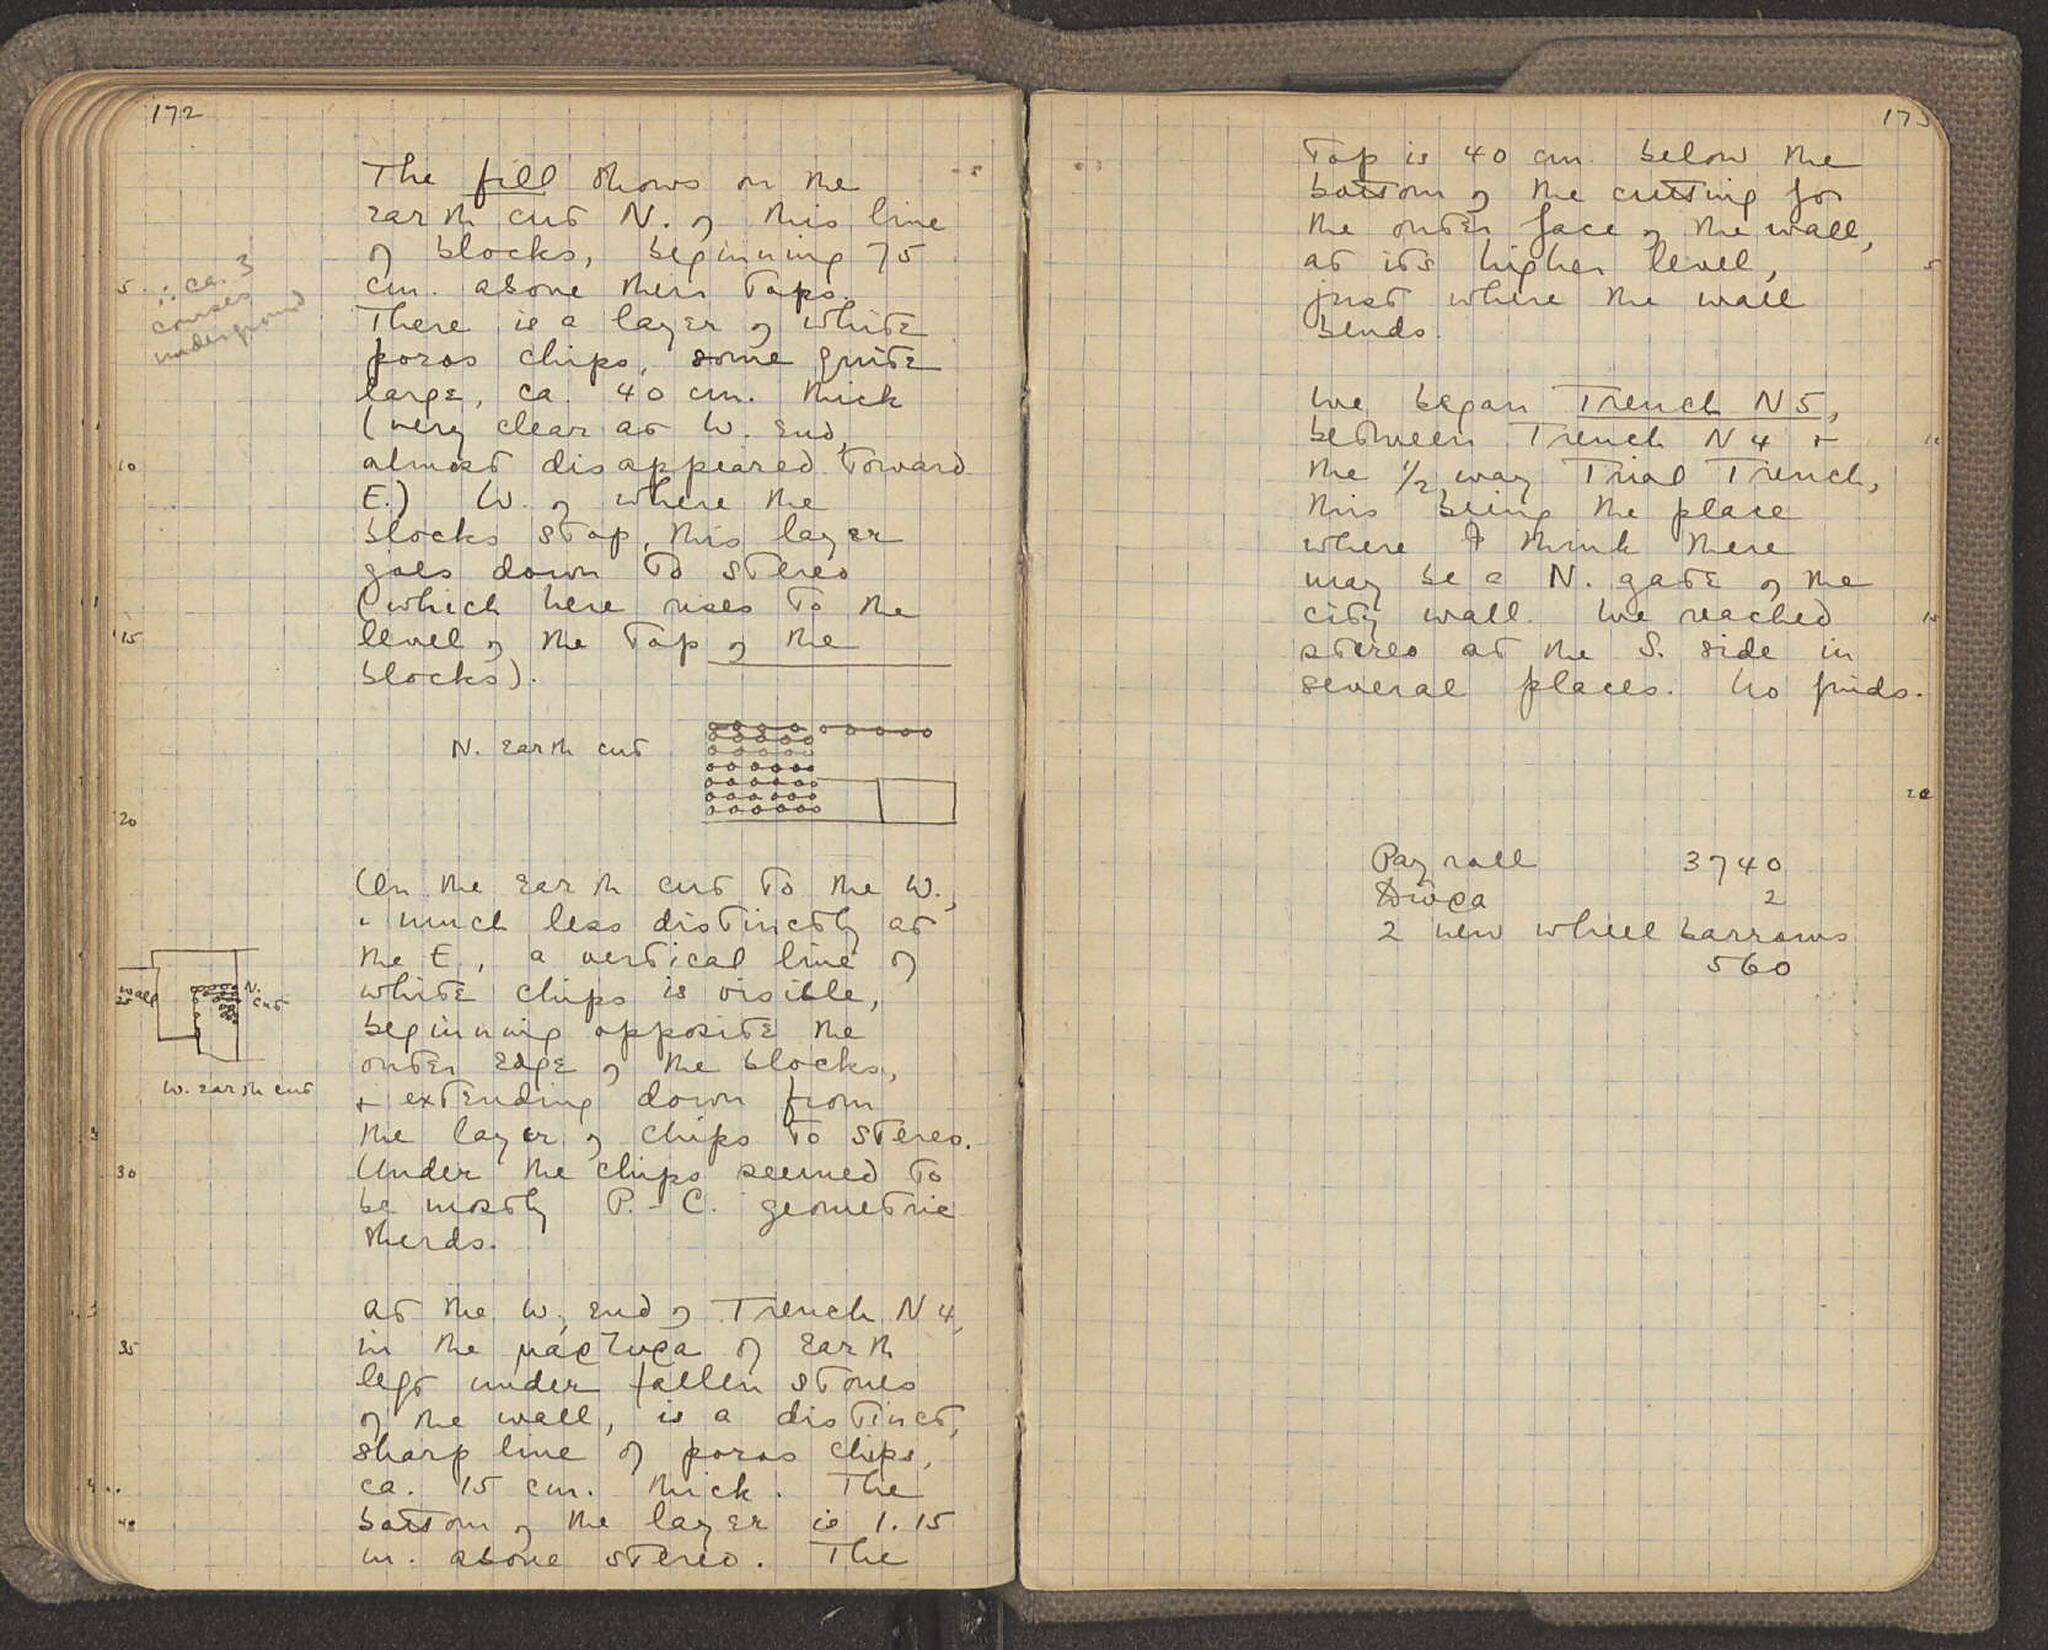 172
The fill shows on the
earth cut N. of this line
of blocks, beginning 75
cm. above their tops.
There is a layer of white
poros chips, some quite
large, ca. 40 cm. thick
(very clear at W. end,
almost disappeared toward
E.) W. of where the
blocks stop, this layer
goes down to stereo
(which here rises to the
level of the top of the
blocks).
∴ ca. 3
courses
underground
5
10
15
20
N. earth cut
On the earth cut to the W.,
& much less distinctly at
the E., a vertical line of
white chips is visible,
beginning opposite the
outer edge of the blocks,
+ extending down from
the layer of chips to stereo.
Under the chips seemed to
be mostly P.-C. geometric
sherds.
wall
N.
cut
W. earth cut
30
At the W. end of Trench N4,
in the μάρτυρα of earth
left under fallen stones
of the wall, is a distinct,
sharp line of poros chips,
ca. 15 cm. thick. The
bottom of the layer is 1.15
m. above stereo. The
35
40
173
top is 40 cm. below the
bottom of the cutting for
the outer face of the wall,
at its higher level,
just where the wall
bends.
We began Trench N5,
between Trench N4 +
the 1/2 way Trial Trench,
this being the place
where I think there
may be a N. gate of the
city wall. We reached
stereo at the S. side in
several places. No finds.
5
10
15
20
Pay roll 3740
2
2 new wheel barrows
560